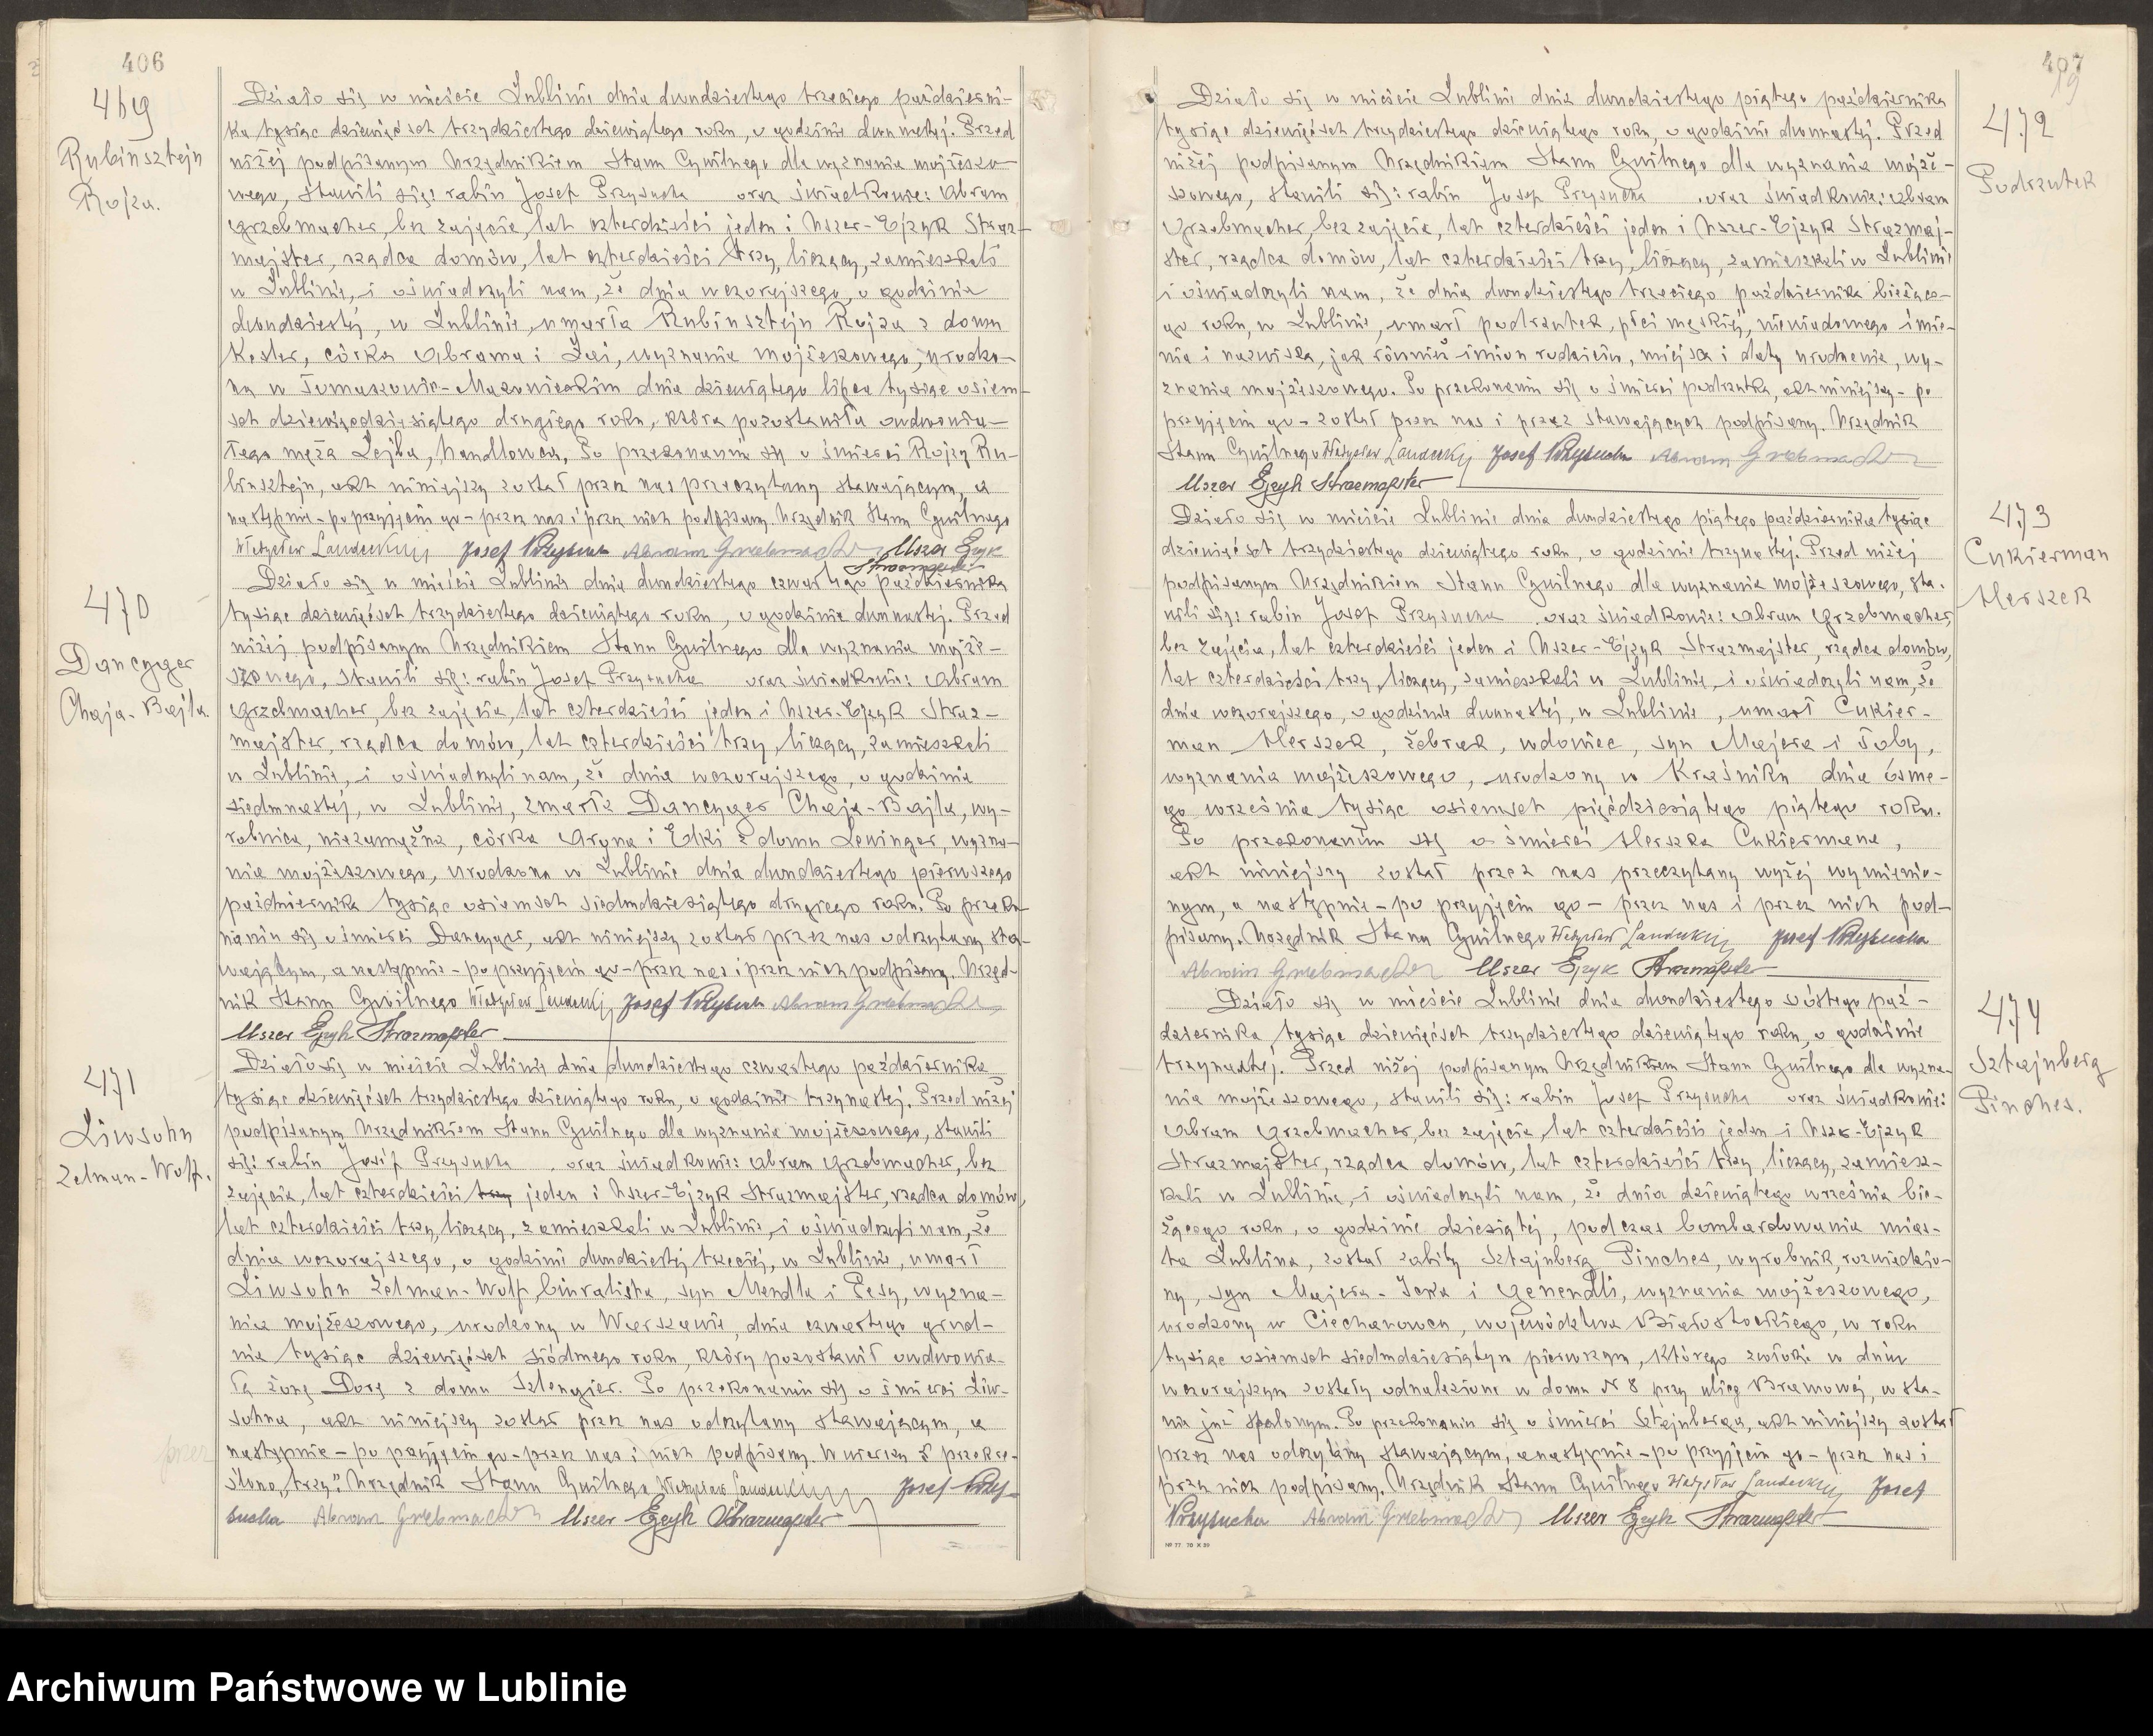 406
469
Rubinsztejn
Rojza.
Działo się w mieście Lublinie dnia dwudziestego trzeciego październi-
ka tysiąc dziewięćset trzydziestego dziewiątego roku, o godzinie dwunastej. Przed
niżej podpisanym Urzędnikiem Stanu Cywilnego dla wyznania mojżeszo-
wego, stawili się: rabin Josef Przysucha oraz świadkowie: Abram
Grzebmacher, bez zajęcia, lat czterdzieści jeden i Uszer-Ejzyk Straz-
majster, rządca domów, lat czterdzieści trzy, liczący, zamieszkali
w Lublinie, i oświadczyli nam, że dnia wczorajszego, o godzinie
dwudziestej, w Lublinie, umarła Rubinsztejn Rojza z domu
Kester, córka Abrama i Łai, wyznania mojżeszowego, urodzo-
na w Tomaszowie-Mazowieckim dnia dziewiątego lipca tysiąc osiem-
set dziewięćdziesiątego drugiego roku, która pozostawiła owdowia-
łego męża Lejba, handlowca. Po przekonaniu się o śmierci Rojzy Ru-
binsztejn, akt niniejszy został przez nas przeczytany stawającym, a
następnie - po przyjęciu go - przez nas i przez nich podpisany. Urzędnik Stanu Cywilnego
Josef Przysucha Abram Grzebmacher Uszer Ejzyk
Strazmajster
470
Dancyger
Chaja-Bajla.
Działo się w mieście Lublinie dnia dwudziestego czwartego października
tysiąc dziewięćset trzydziestego dziewiątego roku, o godzinie dwunastej. Przed
niżej podpisanym Urzędnikiem Stanu Cywilnego dla wyznania mojże-
szowego, stawili się: rabin Josef Przysucha oraz świadkowie: Abram
Grzebmacher, bez zajęcia, lat czterdzieści jeden i Uszer-Ejzyk Straz-
majster, rządca domów, lat czterdzieści trzy, liczący, zamieszkali
w Lublinie, i oświadczyli nam, że dnia wczorajszego, o godzinie
siedemnastej, w Lublinie, zmarła Dancyger Chaja-Bajla, wy-
robnica, niezamężna, córka Arona i Elki z domu Leninger, wyzna-
nia mojżeszowego, urodzona w Lublinie dnia dwudziestego pierwszego
października tysiąc osiemset siedmdziesiątego drugiego roku. Po przeko-
naniu się o śmierci Dancyger, akt niniejszy został przez nas odczytany sta-
wającym, a następnie - po przyjęciu go - przez nas i przez nich podpisany. Urzęd-
nik Stanu Cywilnego Josef Przysucha Abram Grzebmacher
Uszer Ejzyk Strazmajster
471
Liwsohn
Zelman-Wolf.
Działo się w mieście Lublinie dnia dwudziestego czwartego października
tysiąc dziewięćset trzydziestego dziewiątego roku, o godzinie trzynastej. Przed niżej
podpisanym Urzędnikiem Stanu Cywilnego dla wyznania mojżeszowego, stawili
się: rabin Josif Przysucha oraz świadkowie: Abram Grzebmacher, bez
zajęcia, lat czterdzieści trzy jeden i Uszer-Ejzyk Strazmajster, rządca domów,
lat czterdzieści trzy, liczący, zamieszkali w Lublinie, i oświadczyli nam, że
dnia wczorajszego, o godzinie dwudziestej trzeciej, w Lublinie, umarł
Liwsohn Zelman-Wolf, biuralista, syn Mendla i Pesy, wyzna-
nia mojżeszowego, urodzony w Warszawie, dnia czwartego grud-
nia tysiąc dziewięćset siódmego roku, który pozostawił owdowia-
łą żonę Dorę z domu Szlengier. Po przekonaniu się o śmierci Liw-
sohna, akt niniejszy został przez nas odczytany stawającym, a
następnie - po przyjęciu go - przez nas i nich podpisany. W wierszu 5 przekre-
ślono „trzy". Urzędnik Stanu Cywilnego Josef Przy-
sucha Abram Grzebmacher Uszer Ejzyk Strazmajster
407
19
472
Podrzutek
Działo się w mieście Lublinie dnia dwudziestego piątego października
tysiąc dziewięćset trzydziestego dziewiątego roku, o godzinie dwunastej. Przed
niżej podpisanym Urzędnikiem Stanu Cywilnego dla wyznania mojże-
szowego, stawili się: rabin Josef Przysucha oraz świadkowie: Abram
Grzebmacher, bez zajęcia, lat czterdzieści jeden i Uszer-Ejzyk Strazmaj-
ster, rządca domów, lat czterdzieści trzy, liczący, zamieszkali w Lublinie
i oświadczyli nam, że dnia dwudziestego trzeciego października bieżące-
go roku, w Lublinie, umarł podrzutek, płci męskiej, niewiadomego imie-
nia i nazwiska, jak również imion rodziców, miejsca i daty urodzenia, wy-
znania mojżeszowego. Po przekonaniu się o śmierci podrzutka, akt niniejszy - po
przyjęciu go - został przez nas i przez stawających podpisany. Urzędnik
Stanu Cywilnego Josef Przysucha Abram Grzebmacher
Uszer Ejzyk Strazmajster
473
Cukierman
Herszek
Działo się w mieście Lublinie dnia dwudziestego piątego października tysiąc
dziewięćset trzydziestego dziewiątego roku, o godzinie trzynastej. Przed niżej
podpisanym Urzędnikiem Stanu Cywilnego dla wyznania mojżeszowego, sta-
wili się: rabin Josef Przysucha oraz świadkowie: Abram Grzebmacher,
bez zajęcia, lat czterdzieści jeden i Uszer-Ejzyk Strazmajster, rządca domów,
lat czterdzieści trzy, liczący, zamieszkali w Lublinie, i oświadczyli nam, że
dnia wczorajszego, o godzinie dwunastej, w Lublinie, umarł Cukier-
man Herszek, żebrak, wdowiec, syn Majera i Toby,
wyznania mojżeszowego, urodzony w Kraśniku dnia ósme-
go września tysiąc osiemset pięćdziesiątego piątego roku.
Po przekonaniu się o śmierci Herszka Cukiermana,
akt niniejszy został przez nas przeczytany wyżej wymienio-
nym, a następnie - po przyjęciu go - przez nas i przez nich pod-
pisany. Urzędnik Stanu Cywilnego Josef Przysucha
Abram Grzebmacher Uszer Ejzyk Strazmajster
474
Sztajnberg
Pinches.
Działo się w mieście Lublinie dnia dwudziestego szóstego paź-
dziernika tysiąc dziewięćset trzydziestego dziewiątego roku, o godzinie
trzynastej. Przed niżej podpisanym Urzędnikiem Stanu Cywilnego dla wyzna-
nia mojżeszowego, stawili się: rabin Josef Przysucha oraz świadkowie:
Abram Grzebmacher, bez zajęcia, lat czterdzieści jeden i Uszer-Ejzyk
Strazmajster, rządca domów, lat czterdzieści trzy, liczący, zamiesz-
kali w Lublinie, i oświadczyli nam, że dnia dziewiątego września bie-
żącego roku, o godzinie dziesiątej, podczas bombardowania mias-
ta Lublina, został zabity Sztajnberg Pinches, wyrobnik, rozwiedzio-
ny, syn Majera-Icka i Genendli, wyznania mojżeszowego,
urodzony w Ciechanowcu, województwa Białostockiego, w roku
tysiąc osiemset siedmdziesiątym pierwszym, którego zwłoki w dniu
wczorajszym zostały odnalezione w domu N 8 przy ulicy Bramowej, w sta-
nie już spalonym. Po przekonaniu się o śmierci Sztajnberga, akt niniejszy został
przez nas odczytany stawającym, a następnie - po przyjęciu go - przez nas i
przez nich podpisany. Urzędnik Stanu Cywilnego Josef
Przysucha Abram Grzebmacher Uszer Ejzyk Strazmajster
Nº 77. 70 X 39
Archiwum Państwowe w Lublinie